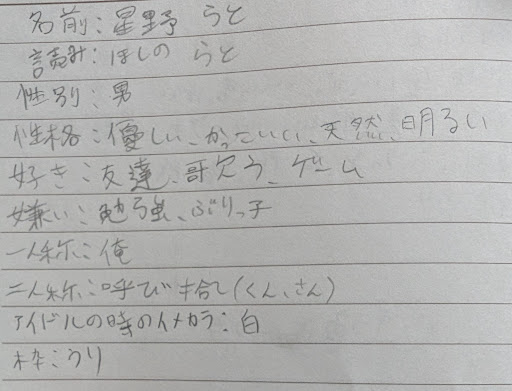 名前：星野 らと
読み：ほしの らと
性別：男
性格：優しい、かっこいい、天然、明るい
好き：友達、歌う、ゲーム
嫌い：勉強、ぶりっ子
一人称：俺
二人称：呼び捨て(くん、さん)
アイドルの時のイメカラ：白
枠：うり